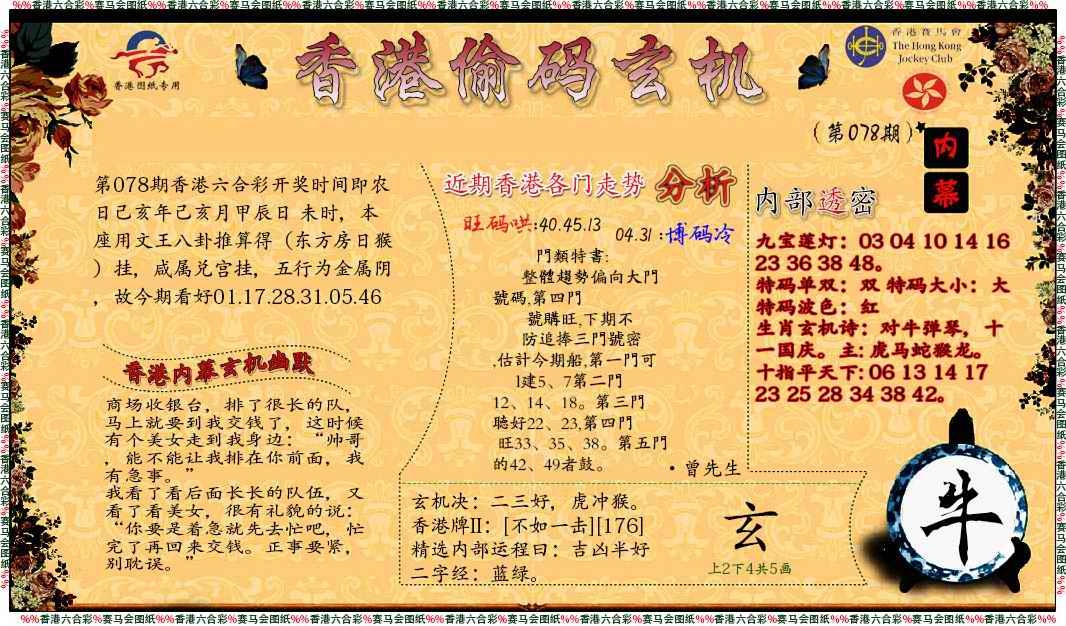 %%香港六合彩%赛马会图纸%%香港六合彩%赛马会图纸%%香港六合彩%赛马会图纸%%香港六合彩%赛马会图纸%%香港六合彩%赛马会图纸%%香港六合彩%赛马会图纸%%香港六合彩%赛马会图纸%%香港六合彩%%
香港图纸专用
香港偷码玄机
香港賽馬會
The Hong Kong
Jockey Club
(第078期)
内
幕
第078期香港六合彩开奖时间即农
日己亥年己亥月甲辰日 未时，本
座用文王八卦推算得（东方房日猴
）挂，咸属兑宫挂，五行为金属阴
，故今期看好01.17.28.31.05.46
香港内幕玄机幽默
商场收银台，排了很长的队，
马上就要到我交钱了，这时候
有个美女走到我身边：“帅哥
，能不能让我排在你前面，我
有急事。”
我看了看后面长长的队伍，又
看了看美女，很有礼貌的说：
“你要是着急就先去忙吧，忙
完了再回来交钱。正事要紧，
别耽误。”
近期香港各门走势 分析
旺码哄:40.45.13
04.31:博码冷
門類特書:
整體趨勢偏向大門
號碼,第四門
號購旺,下期不
防追捧三門號密
,估計今期船,第一門可
l建5、7第二門
12、14、18。第三門
聰好22、23,第四門
旺33、35、38。第五門
的42、49者鼓。
·曾先生
内部透密
九宝莲灯：03 04 10 14 16
23 36 38 48。
特码单双：双 特码大小：大
特码波色：红
生肖玄机诗：对牛弹琴，十
一国庆。主:虎马蛇猴龙。
十指平天下:06 13 14 17
23 25 28 34 38 42。
玄机决：二三好，虎冲猴。
香港牌II：[不如一击][176]
精选内部运程曰：吉凶半好
二字经：蓝绿。
玄
上2下4共5画
牛
%%香港六合彩%赛马会图纸%%香港六合彩%赛马会图纸%%香港六合彩%赛马会图纸%%香港六合彩%赛马会图纸%%香港六合彩%赛马会图纸%%香港六合彩%赛马会图纸%%香港六合彩%赛马会图纸%%香港六合彩%%